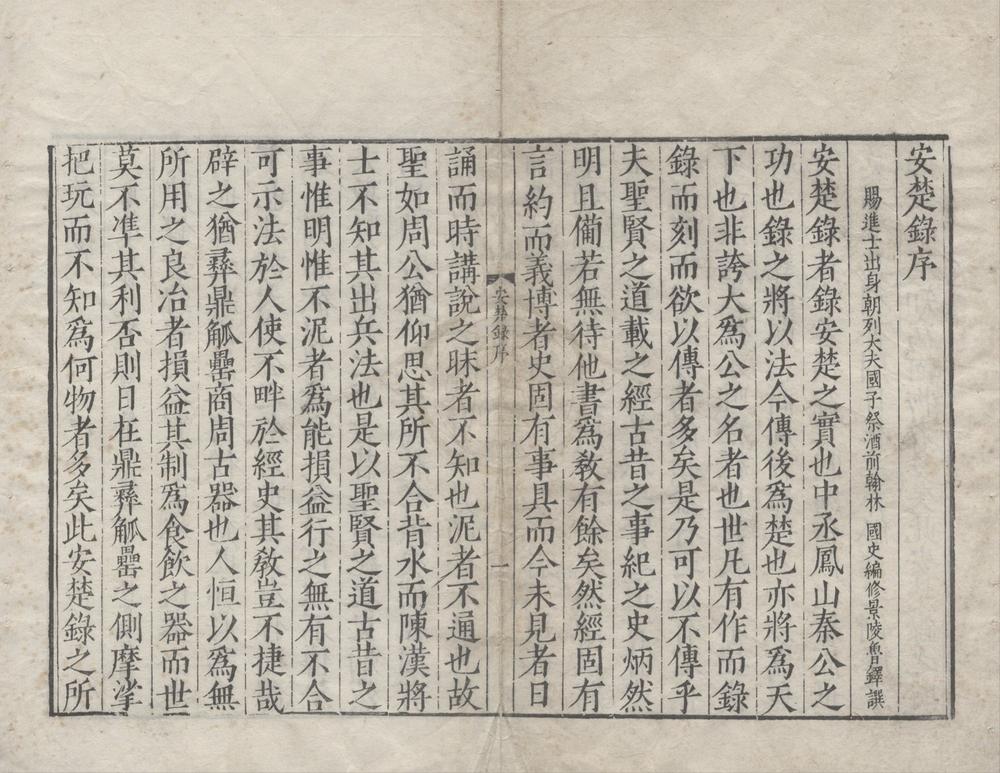 安楚錄序
賜進士出身朝列大夫國子祭酒前翰林 國史編修景陵魯鐸 譔
安楚錄者錄安楚之實也中丞鳳山秦公之
功也錄之將以法今傳後爲楚也亦將爲天
下也非誇大爲公之名者也世凡有作而錄
錄而刻而欲以傳者多矣是乃可以不傳乎
夫聖賢之道載之經古昔之事紀之史炳然
明且僃若無待他書爲敎有餘矣然經固有
言約而義博者史固有事具而今未見者日
安楚錄序
一
誦而時講說之昧者不知也泥者不通也故
聖如周公猶仰思其所不合背水而陳漢將
士不知其出兵法也是以聖賢之道古昔之
事惟明惟不泥者爲能損益行之無有不合
可示法於人使不畔於經史其敎豈不捷哉
辟之猶彞鼎觚罍商周古器也人恒以爲無
所用之良冶者損益其制爲食飲之器而世
莫不準其利否則日在鼎彞觚罍之側摩挲
把玩而不知爲何物者多矣此安楚錄之所